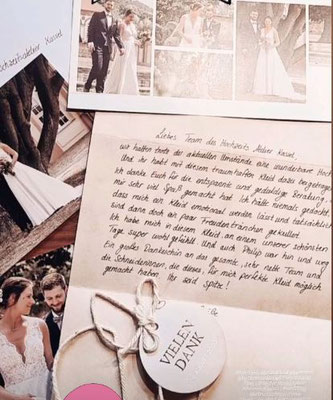 Hochzeitsatelier Kassel
Liebes Team des Hochzeits Atelier Kassel,
wir hatten trotz der aktuellen Umstände eine wunderbare Hoch
und ihr habt mit diesem traumhaften Kleid dazu beigetragen
Ich danke Euch für die entspannte und geduldige Beratung,
mir sehr viel Spaß gemacht hat. Ich hätte niemals gedacht,
dass mich ein Kleid emotional werden lässt und tatsächlich
sind dann doch ein paar Freudentränchen gekullert.
Ich habe mich in diesem Kleid an einem unserer schönsten
Tage super wohl gefühlt. Und auch Philip war hin und weg
Ein großes Dankeschön an das gesamte, sehr nette Team und
die Schneiderinnen, die dieses, für mich perfekte Kleid möglich
gemacht haben. Ihr seid spitze!
VIELEN
DANK